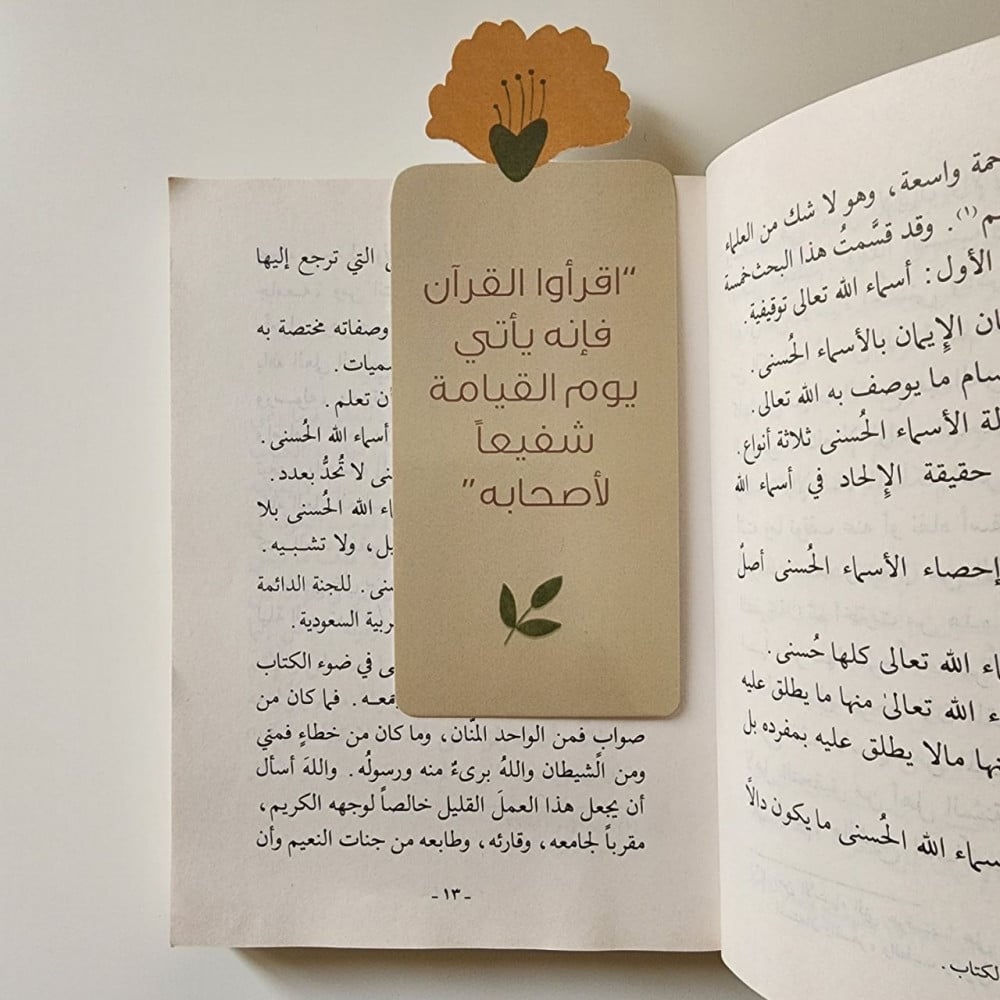 “اقرأوا القرآن
فإنه يأتي
يوم القيامة
شفيعاً
لأصحابه”
حمة واسعة، وهو لا شك من العلماء
م (١). وقد قسَّمتُ هذا البحث خمسة
الأول: أسماء الله تعالى توقيفية.
الإِيمان بالأسماء الحُسنى.
ما يوصف به الله تعالى.
الأسماء الحُسنى ثلاثة أنواع.
حقيقة الإِلحاد في أسماء الله
إحصاء الأسماء الحُسنى أصلٌ
الله تعالى كلها حُسنى.
الله تعالىٰ منها ما يطلق عليه
مالا يطلق عليه بمفرده بل
الله الحُسنى ما يكون دالاً
لكتاب.
التي ترجع إليها
وصفاته مختصة به
سميات.
تعلم.
أسماء الله الحُسنى.
لا تُحدُّ بعدد.
الله الحُسنى بلا
ولا تشبيه.
للجنة الدائمة
السعودية.
في ضوء الكتاب
فما كان من
صواب فمن الواحد المنَّان، وما كان من خطاءٍ فمني
ومن الشيطان واللهُ برىءٌ منه ورسولُه. واللهَ أسأل
أن يجعل هذا العملَ القليل خالصاً لوجهه الكريم،
مقرباً لجامعه، وقارئه، وطابعه من جنات النعيم وأن
- ١٣ -